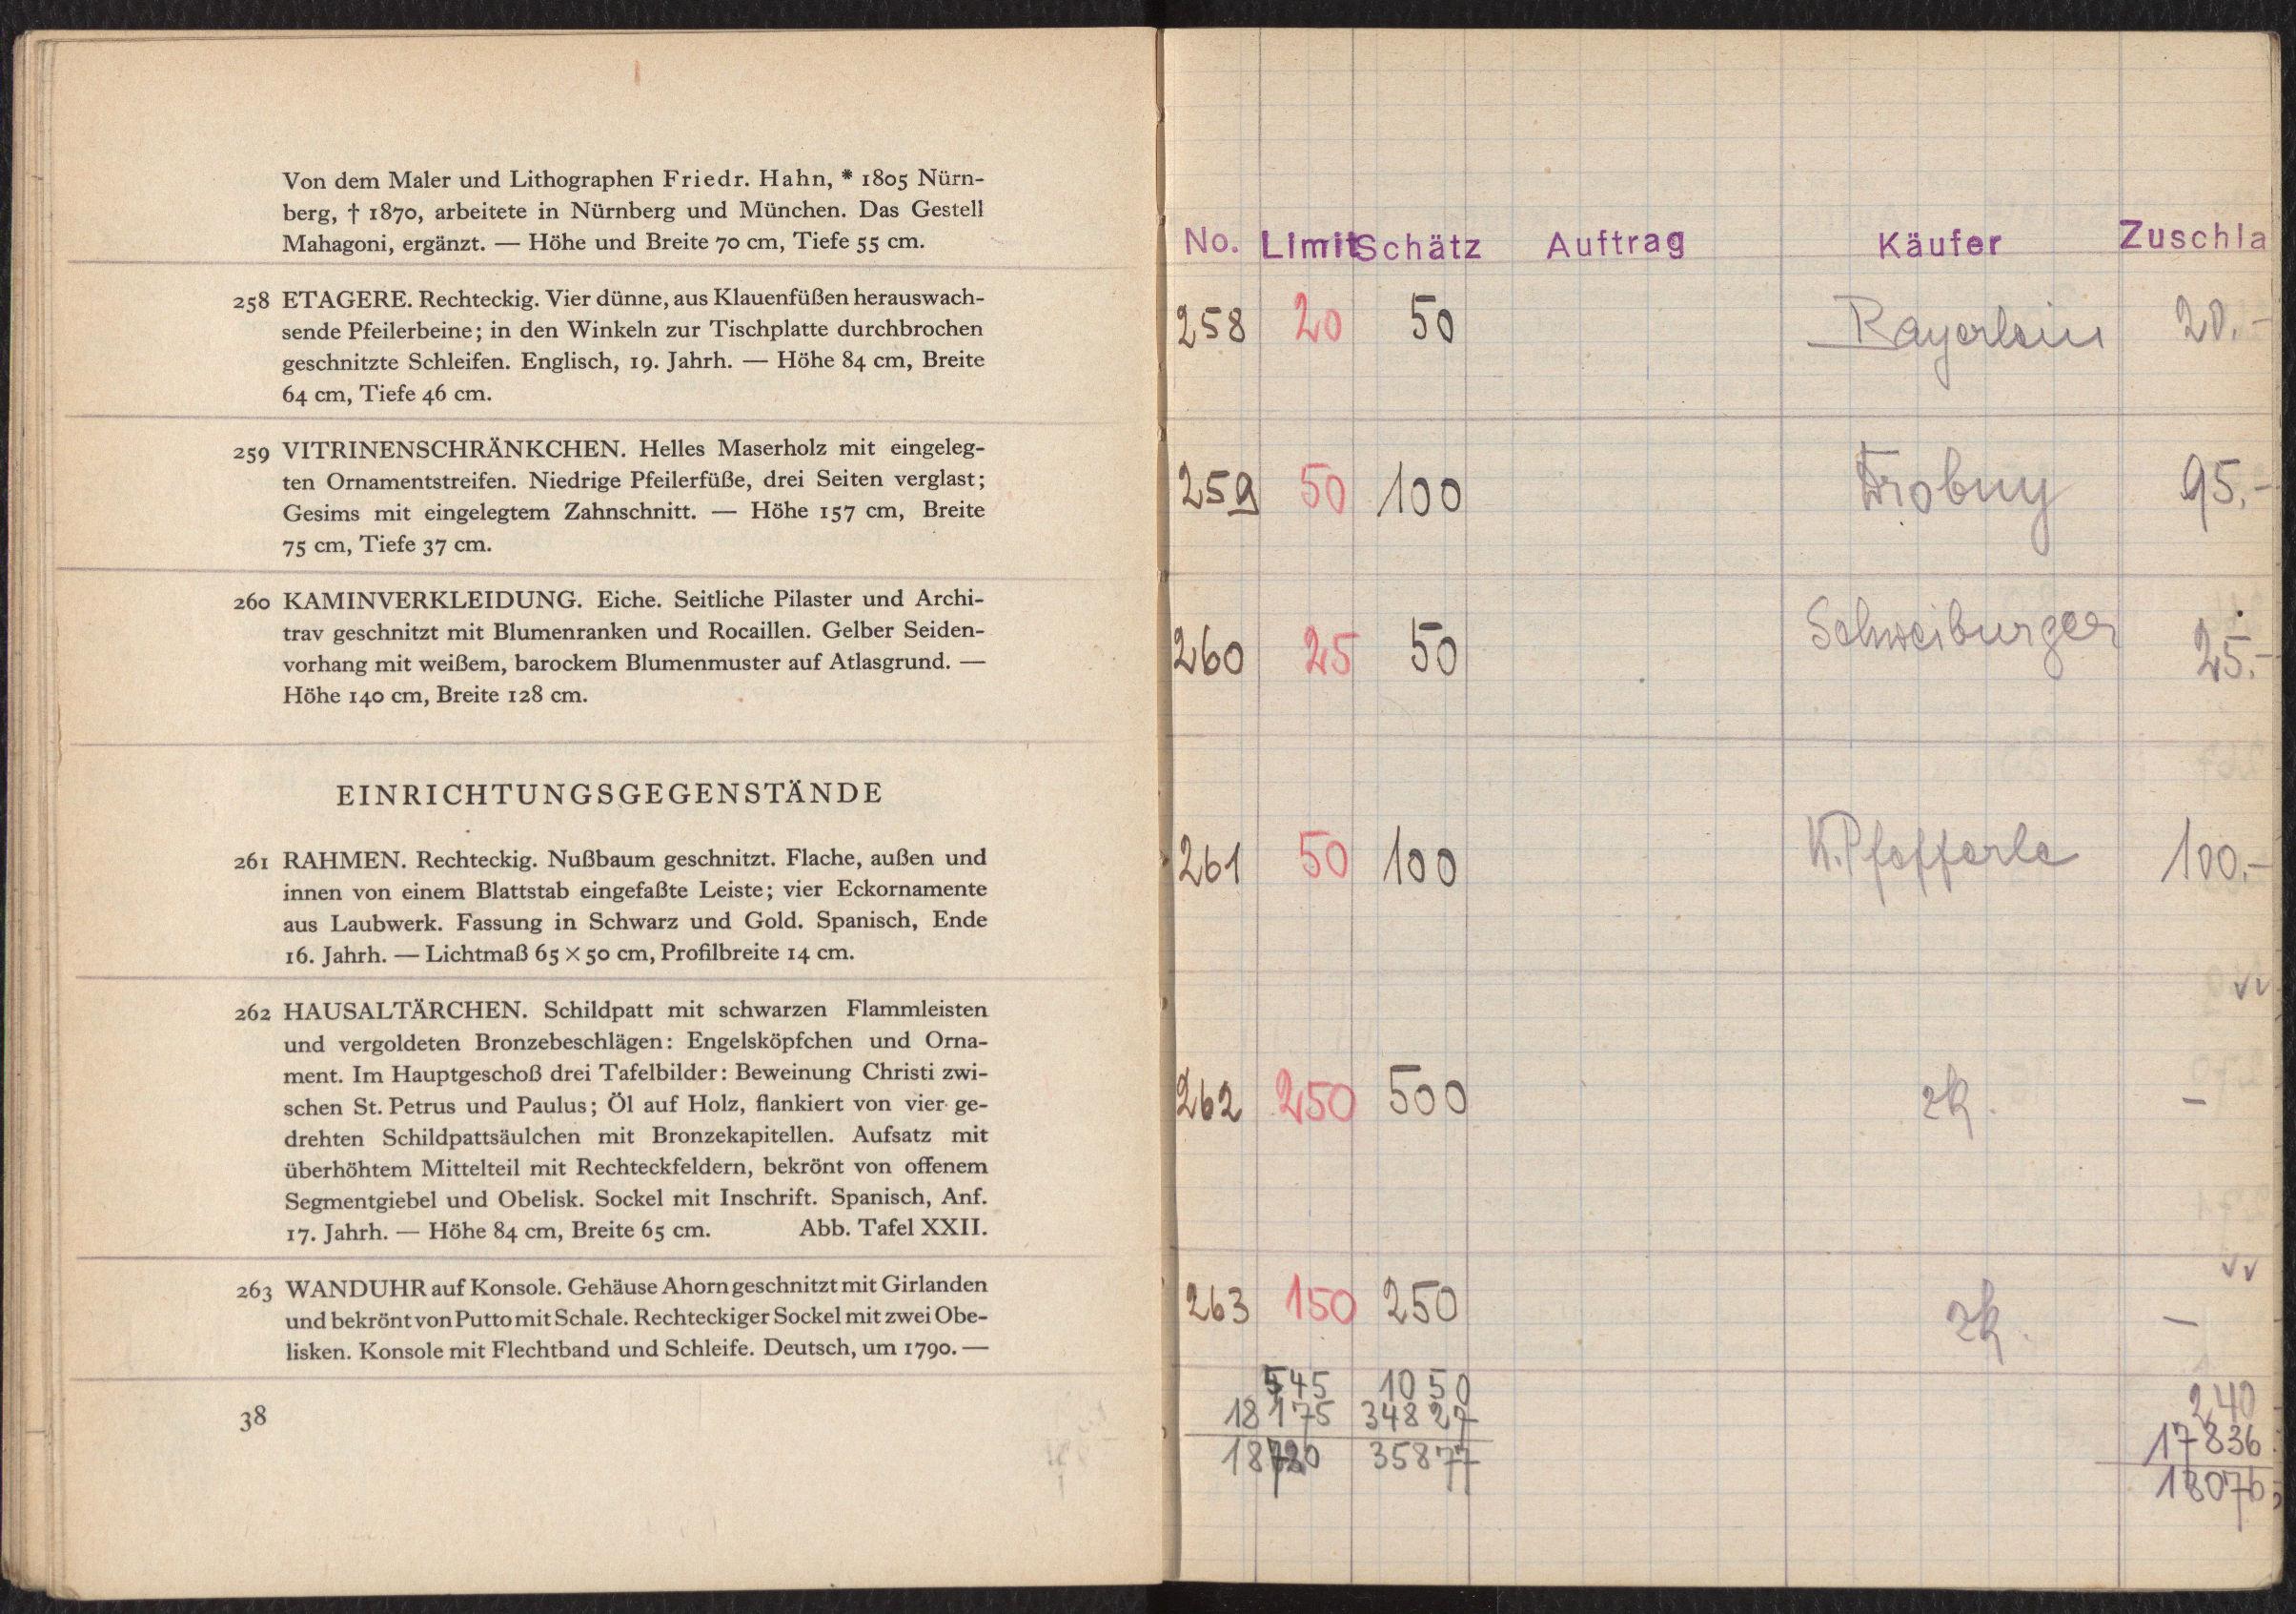 Von dem Maler und Lithographen Friedr. Hahn, * 1805 Nürn-
berg, † 1870, arbeitete in Nürnberg und München. Das Gestell
Mahagoni, ergänzt. — Höhe und Breite 70 cm, Tiefe 55 cm.
258 ETAGERE. Rechteckig. Vier dünne, aus Klauenfüßen herauswach-
sende Pfeilerbeine; in den Winkeln zur Tischplatte durchbrochen
geschnitzte Schleifen. Englisch, 19. Jahrh. — Höhe 84 cm, Breite
64 cm, Tiefe 46 cm.
259 VITRINENSCHRÄNKCHEN. Helles Maserholz mit eingeleg-
ten Ornamentstreifen. Niedrige Pfeilerfüße, drei Seiten verglast;
Gesims mit eingelegtem Zahnschnitt. — Höhe 157 cm, Breite
75 cm, Tiefe 37 cm.
260 KAMINVERKLEIDUNG. Eiche. Seitliche Pilaster und Archi-
trav geschnitzt mit Blumenranken und Rocaillen. Gelber Seiden-
vorhang mit weißem, barockem Blumenmuster auf Atlasgrund. —
Höhe 140 cm, Breite 128 cm.
EINRICHTUNGSGEGENSTÄNDE
261 RAHMEN. Rechteckig. Nußbaum geschnitzt. Flache, außen und
innen von einem Blattstab eingefaßte Leiste; vier Eckornamente
aus Laubwerk. Fassung in Schwarz und Gold. Spanisch, Ende
16. Jahrh. — Lichtmaß 65 × 50 cm, Profilbreite 14 cm.
262 HAUSALTÄRCHEN. Schildpatt mit schwarzen Flammleisten
und vergoldeten Bronzebeschlägen: Engelsköpfchen und Orna-
ment. Im Hauptgeschoß drei Tafelbilder: Beweinung Christi zwi-
schen St. Petrus und Paulus; Öl auf Holz, flankiert von vier ge-
drehten Schildpattsäulchen mit Bronzekapitellen. Aufsatz mit
überhöhtem Mittelteil mit Rechteckfeldern, bekrönt von offenem
Segmentgiebel und Obelisk. Sockel mit Inschrift. Spanisch, Anf.
17. Jahrh. — Höhe 84 cm, Breite 65 cm. Abb. Tafel XXII.
263 WANDUHR auf Konsole. Gehäuse Ahorn geschnitzt mit Girlanden
und bekrönt von Putto mit Schale. Rechteckiger Sockel mit zwei Obe-
lisken. Konsole mit Flechtband und Schleife. Deutsch, um 1790. —
38
No. Limit Schätz Auftrag Käufer Zuschla
258 20 50 Rayerlein 20.-
259 50 100 Drobny 95.-
260 25 50 Schweiburger 25.-
261 50 100 K. Pfefferle 100.-
262 250 500 zk. -
263 150 250 zk. -
545 1050 240
18175 34827 17836
18720 35877 18076